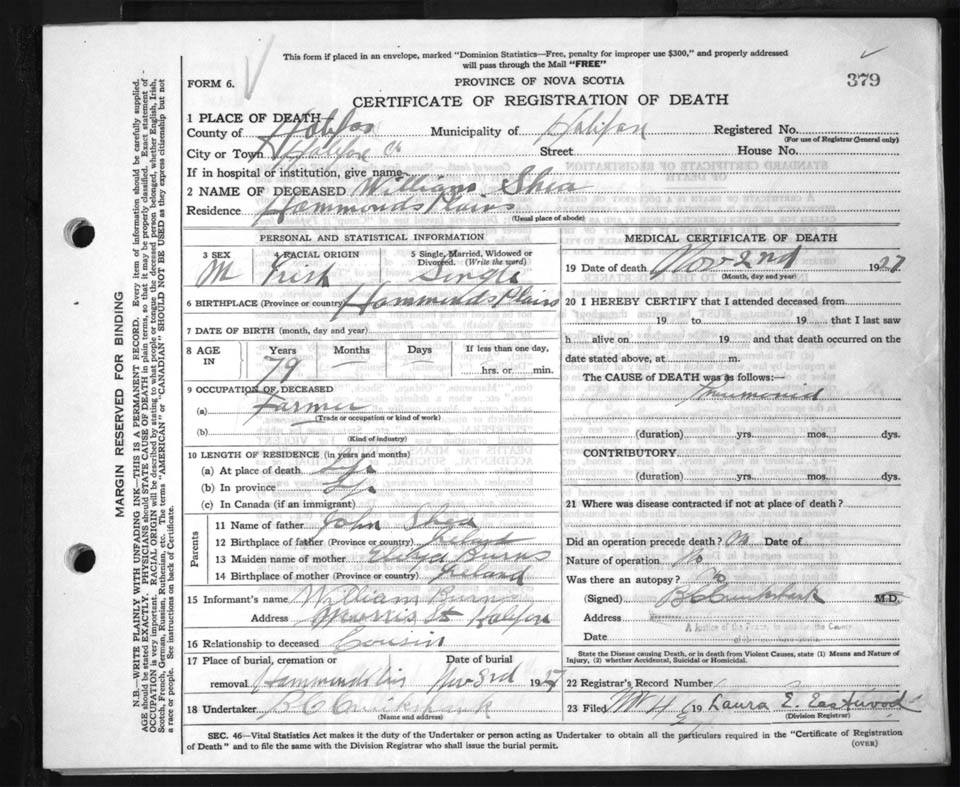 This form if placed in an envelope, marked "Dominion Statistics—Free, penalty for improper use $300," and properly addressed
will pass through the Mail "FREE"
379
FORM 6.
PROVINCE OF NOVA SCOTIA
CERTIFICATE OF REGISTRATION OF DEATH
1 PLACE OF DEATH
County of Halifax Municipality of Halifax Registered No.
(For use of Registrar General only)
City or Town Halifax Co Street House No.
If in hospital or institution, give name
2 NAME OF DECEASED William Shea
Residence Hammonds Plains
(Usual place of abode)
PERSONAL AND STATISTICAL INFORMATION
3 SEX 4 RACIAL ORIGIN 5 Single, Married, Widowed or Divorced. (Write the word)
M Irish Single
6 BIRTHPLACE (Province or country) Hammonds Plains
7 DATE OF BIRTH (month, day and year)
8 AGE IN Years Months Days If less than one day,
79 — hrs. or min.
9 OCCUPATION OF DECEASED
(a) Farmer
(Trade or occupation or kind of work)
(b)
(Kind of industry)
10 LENGTH OF RESIDENCE (in years and months)
(a) At place of death Life
(b) In province Life
(c) In Canada (if an immigrant)
Parents
11 Name of father John Shea
12 Birthplace of father (Province or country) Ireland
13 Maiden name of mother Eliza Burns
14 Birthplace of mother (Province or country) Ireland
15 Informant's name William Burns
Address Morris St Halifax
16 Relationship to deceased Cousin
17 Place of burial, cremation or Date of burial
removal Hammonds Plains Nov 3rd 1927
18 Undertaker B C Cruikshank
(Name and address)
MEDICAL CERTIFICATE OF DEATH
19 Date of death Nov 2nd 1927
(Month, day and year)
20 I HEREBY CERTIFY that I attended deceased from
19 to 19 that I last saw
h alive on 19 and that death occurred on the
date stated above, at m.
The CAUSE OF DEATH was as follows:—
Pneumonia
(duration) yrs. mos. dys.
CONTRIBUTORY
(duration) yrs. mos. dys.
21 Where was disease contracted if not at place of death?
Did an operation precede death? Date of
Nature of operation No
Was there an autopsy? No
(Signed) B C Cruikshank M.D.
Address A Justice of the Peace, in and for the County
Date
State the Disease causing Death, or in death from Violent Causes, state (1) Means and Nature of
Injury, (2) whether Accidental, Suicidal or Homicidal.
22 Registrar's Record Number
23 Filed Nov 4 19 Laura E. Eastwood
(Division Registrar)
SEC. 46—Vital Statistics Act makes it the duty of the Undertaker or person acting as Undertaker to obtain all the particulars required in the "Certificate of Registration
of Death" and to file the same with the Division Registrar who shall issue the burial permit.
(OVER)
MARGIN RESERVED FOR BINDING
N.B.—WRITE PLAINLY WITH UNFADING INK—THIS IS A PERMANENT RECORD. Every item of information should be carefully supplied.
AGE should be stated EXACTLY. PHYSICIANS should STATE CAUSE OF DEATH in plain terms, so that it may be properly classified. Exact statement of
OCCUPATION is very important. RACIAL ORIGIN will be described by stating to what people or tongue the deceased person belonged, whether English, Irish,
Scotch, French, German, Russian, Ruthenian, etc. The terms "AMERICAN" or "CANADIAN" SHOULD NOT BE USED as they express citizenship but not
a race or people. See instructions on back of Certificate.